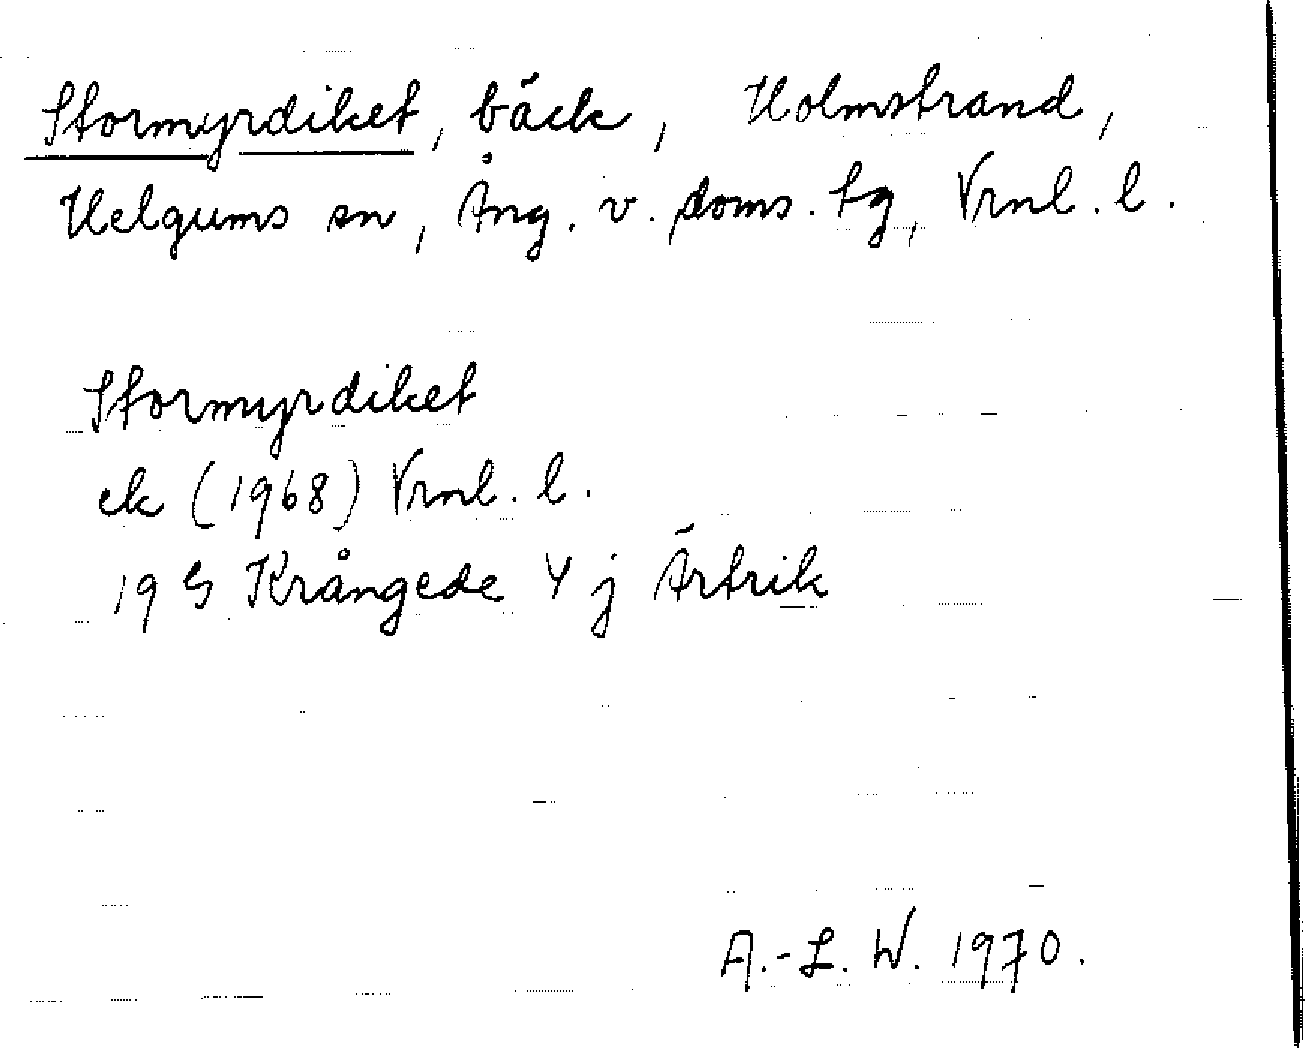 Stormyrdiket, bäck, Holmstrand,
Helgums sn, Ång. v. doms. tg, Vrnl. l.
Stormyrdiket
ek (1968) Vrnl. l.
19 G Krångede 4 j Ärtrik
A.-L. W. 1970.